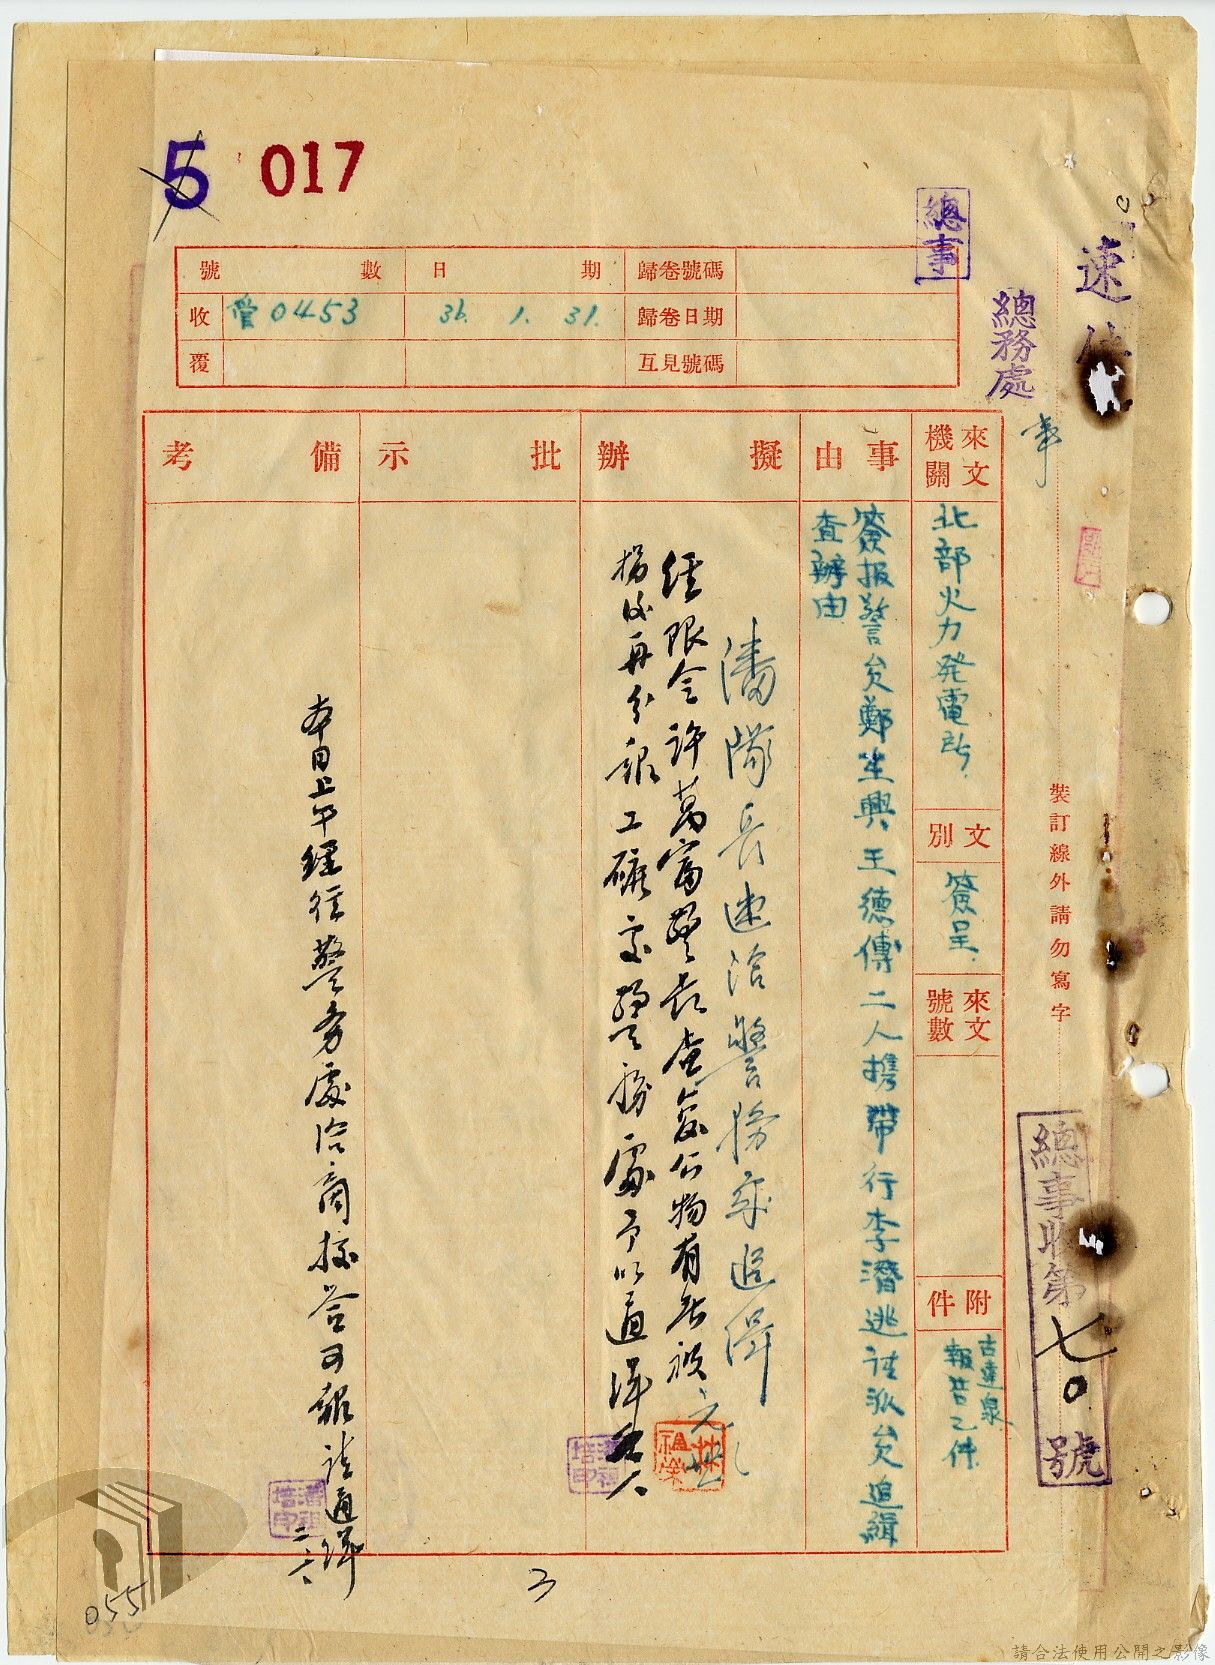 5 017
總事
速件
總務處
號數 日期 歸卷號碼
收 管0453 36. 1. 31. 歸卷日期
覆 互見號碼
來文機關
北部火力発電所
文別
簽呈
來文號數
附件
古連泉
報告乙件
事由
簽報警员鄭生興王德傳二人携帶行李潛逃請派员追緝
查辦由
擬辦
潘隊長速洽警務處追緝
經限令許萬富警長查簽公物有無被
携後再分報工礦室警務處予以通緝
批示
備考
本日上午經往警務處洽商據答可報請通緝
裝訂線外請勿寫字
總事收第七0號
3
055
請合法使用公開之影像